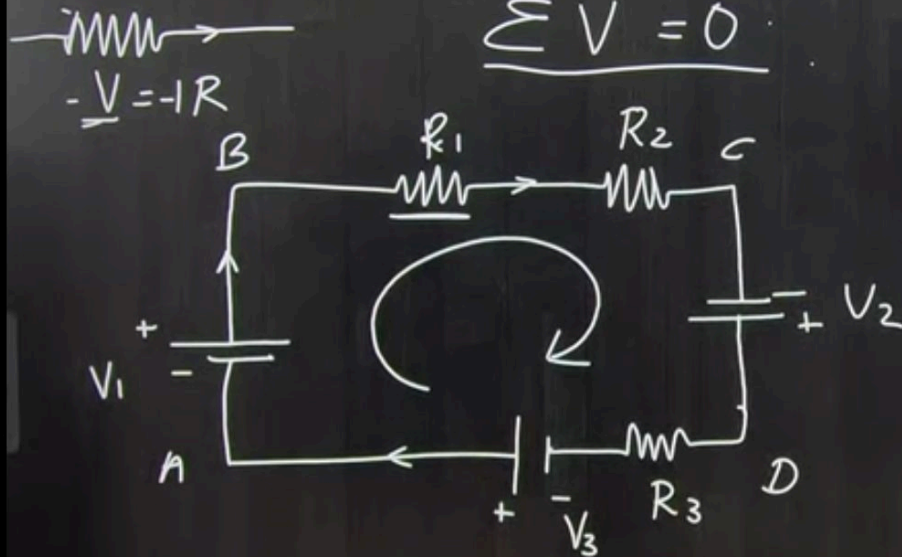 Σ V = 0
- V = -IR
B
R1
R2
C
+
-
V1
-
+
V2
A
+
-
V3
R3
D